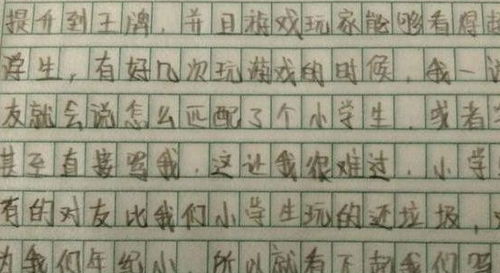 提升到王牌，并且游戏玩家能够看得起
学生，有好几次玩游戏的时候，我一说
友就会说怎么匹配了个小学生，或者
甚至直接骂我，这让我很难过，小学
有的对友比我们小学生玩的还垃圾，
为我们年纪小，所以就看不起我们